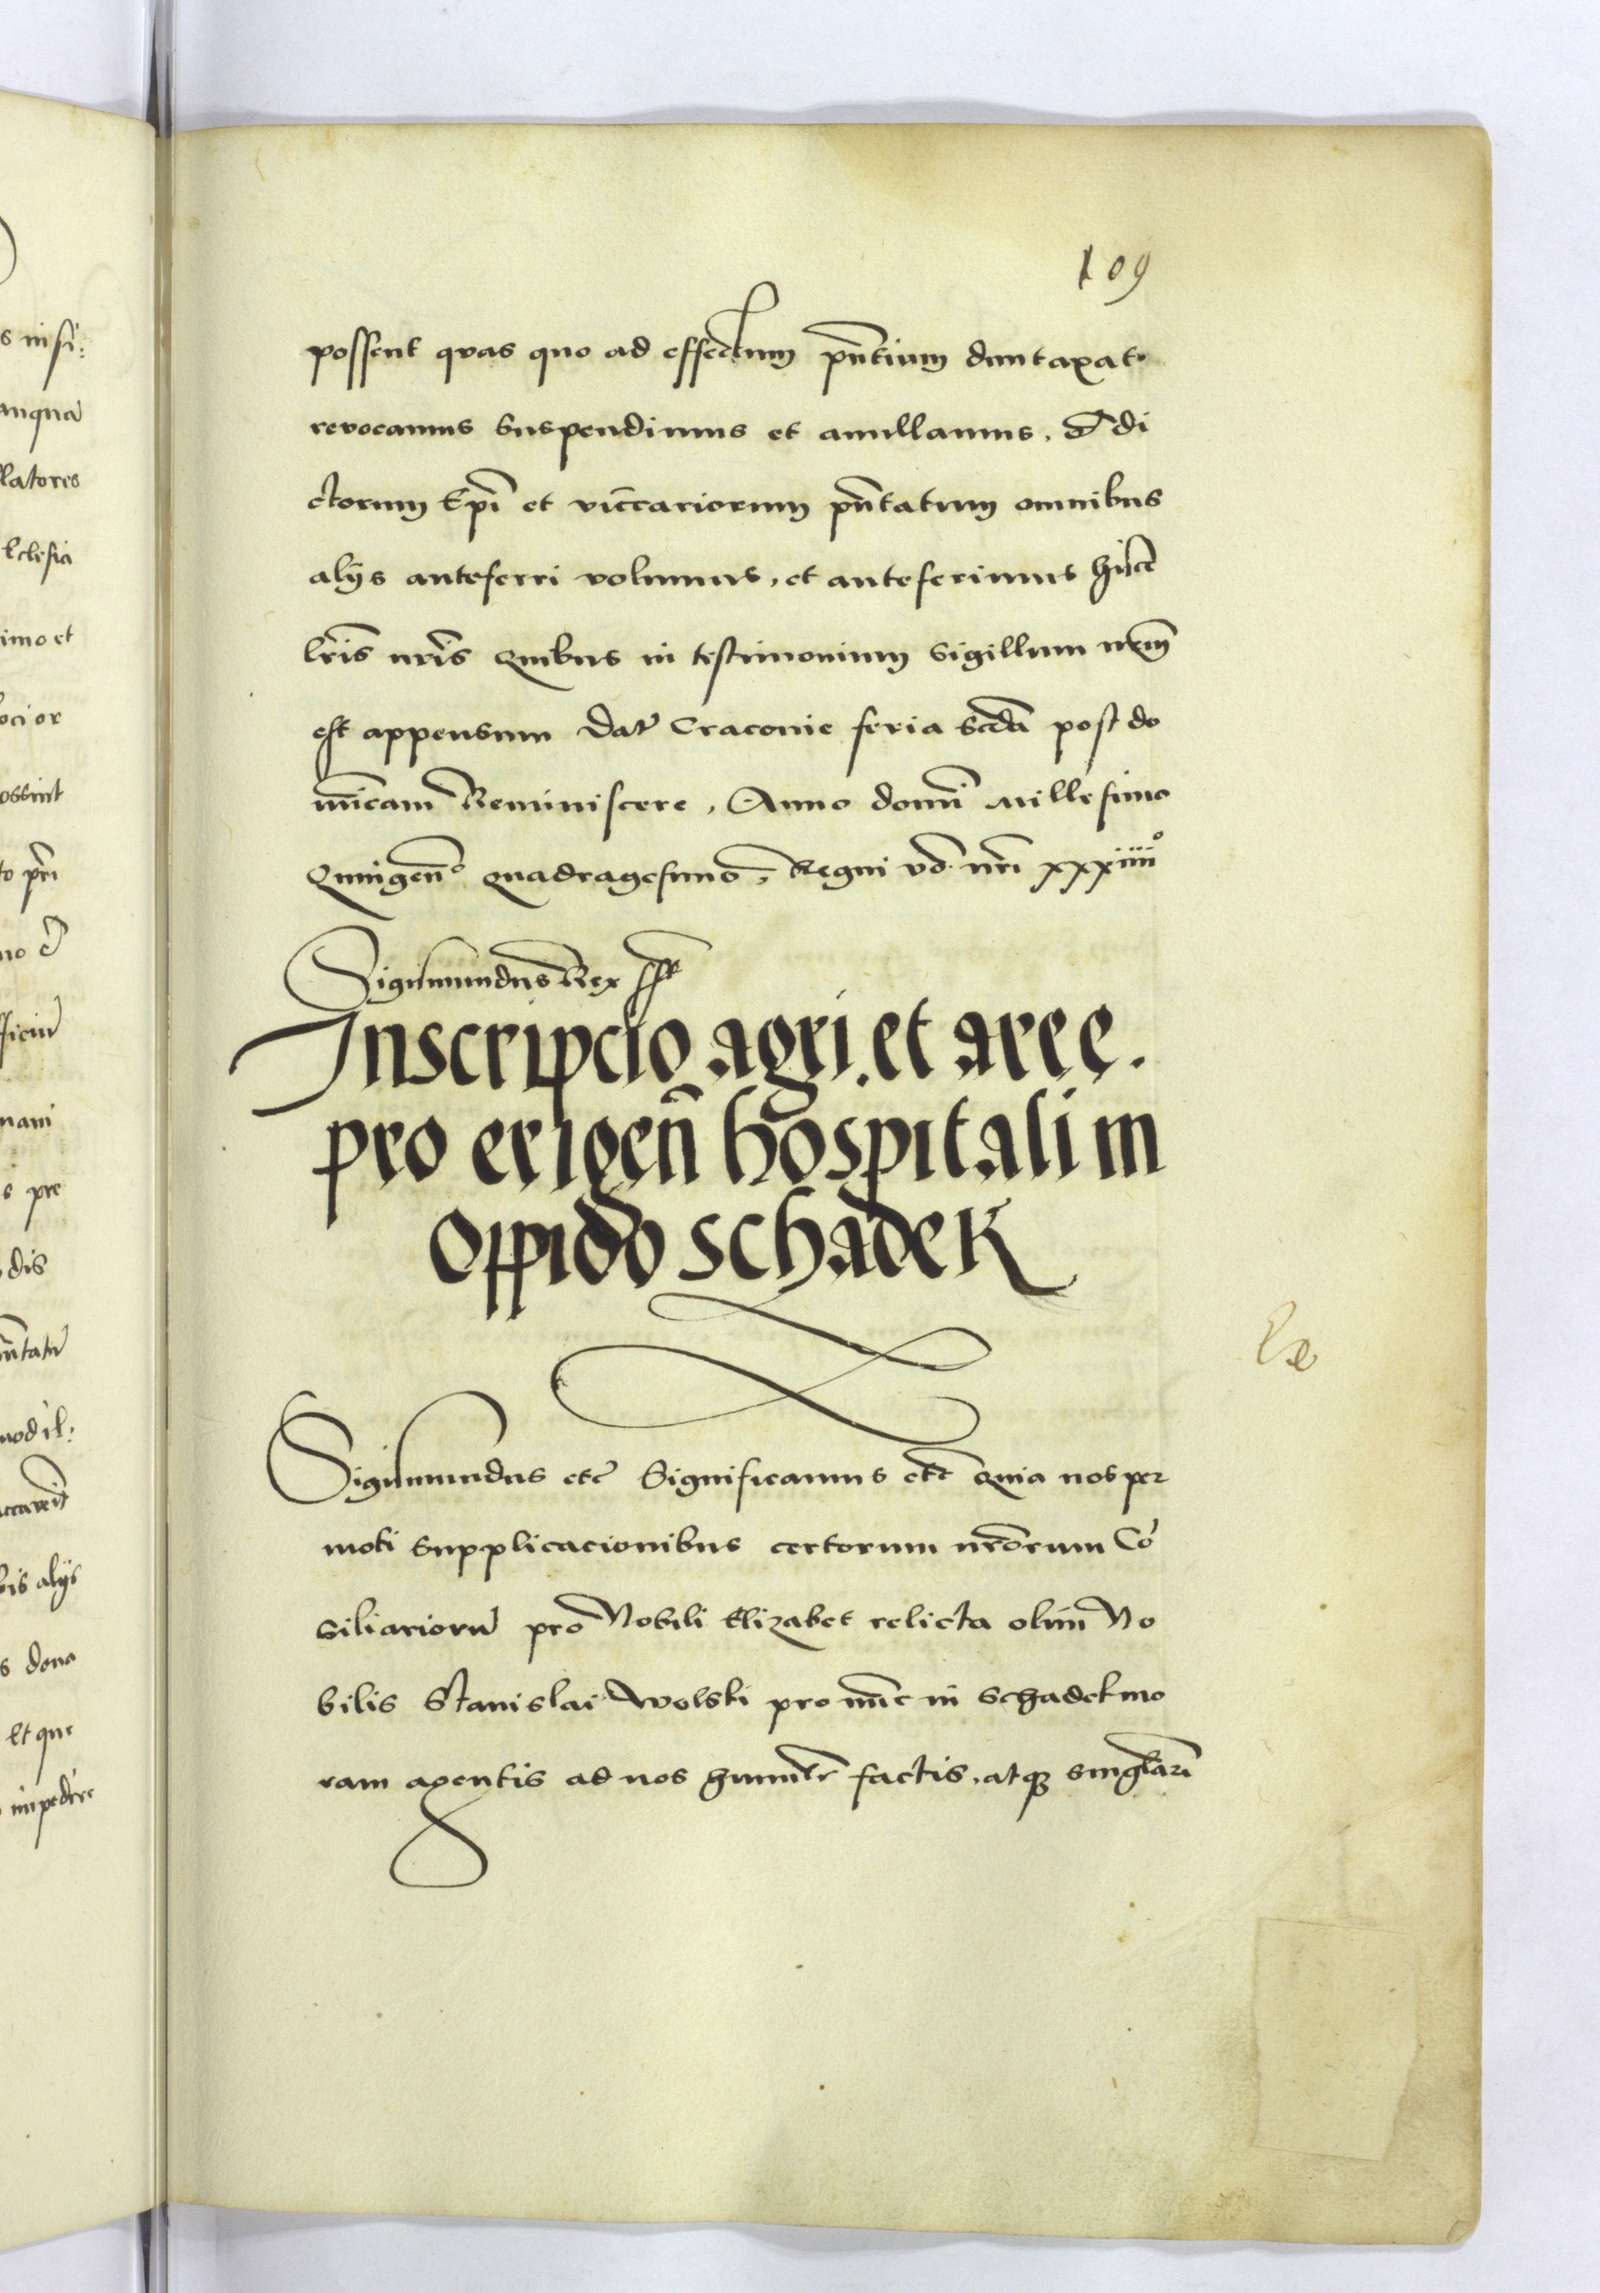 109
possent quas quo ad effectum pn̄tium duntaxat
revocamus suspendimus et anullamus, & di
ctorum Epī et viccariorum pn̄tatum omnibus
alijs anteferri volumus, et anteferimus hisce
lr̄is nr̄is Quibus in testimonium Sigillum nr̄m
est appensum Dat̄ Cracovie feria scd̄a post do
mīcam Reminiscere, Anno domī Millesimo
Quingen̄º quadragesimo, Regni vō nr̄i xxxiiiiº
Sigismundus Rex sst
Inscripcio agri et aree.
pro erigen̄ hospitali in
oppido schadek
Sigismundus etc̄ Significamus etc̄ Quia nos per
moti supplicacionibus certorum nr̄orum Cō
siliariorū pro Nobili Elizabet relicta olim No
bilis Stanislai Wolski pro nūc in Schadek mo
ram agentis ad nos humilr̄ factis, atq; singlari